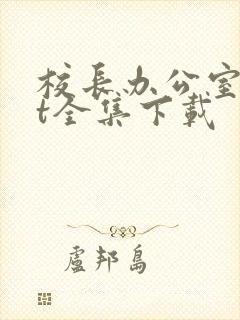 校長办公室
t全集下載
盧邦島